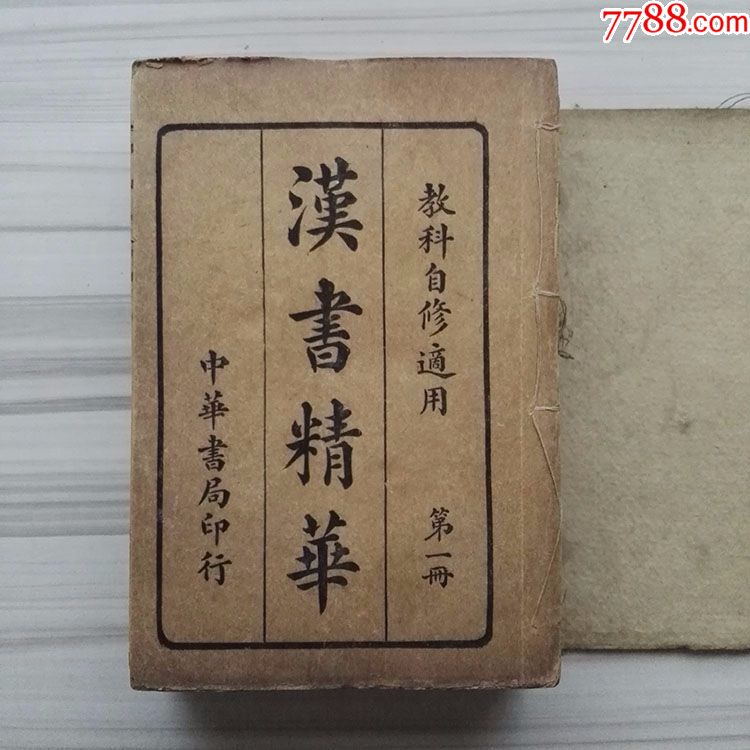 7788.com
教科自修適用 第一冊
漢書精華
中華書局印行